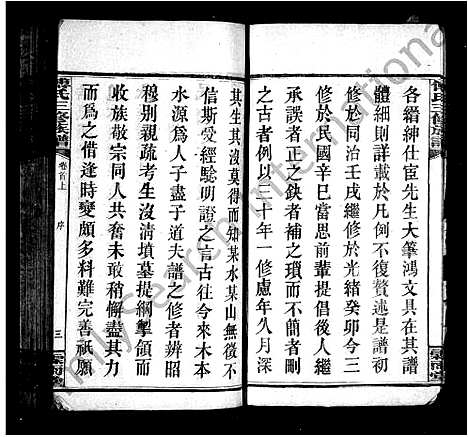 各縉紳仕宦先生大筆鴻文具在其譜
體細則詳載於凡例不復贅述是譜初
修於同治壬戌繼修於光緒癸卯今三
修於民國辛巳當恩前輩提倡後人繼
承誤者正之鈌者補之瑣而不簡前剛
之古者例以三十年一修慮年久月深
其生其沒莫得而知某水某山無徵不
信斯受經驗明證之言古往今來木本
水源為人子盡子道夫譜之修者辨昭
穆別親疏考生沒清墳墓提綱挈領而
收族敬宗同人共奮未敢稍懈盡其力
而為之惜逢時變頗多料難完善祇願
氏三修族譜
卷首上
序
三
My Search International